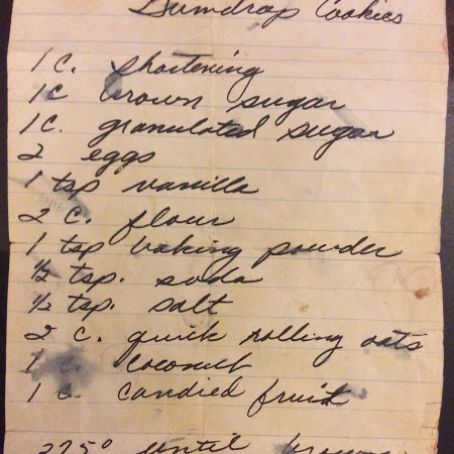 Gumdrop Cookies
1 c. shortening
1 c brown sugar
1 c. granulated sugar
2 eggs
1 tsp vanilla
2 c. flour
1 tsp baking powder
½ tsp. soda
½ tsp. salt
2 c. quick rolling oats
1 c. coconut
1 c. candied fruit
until brown